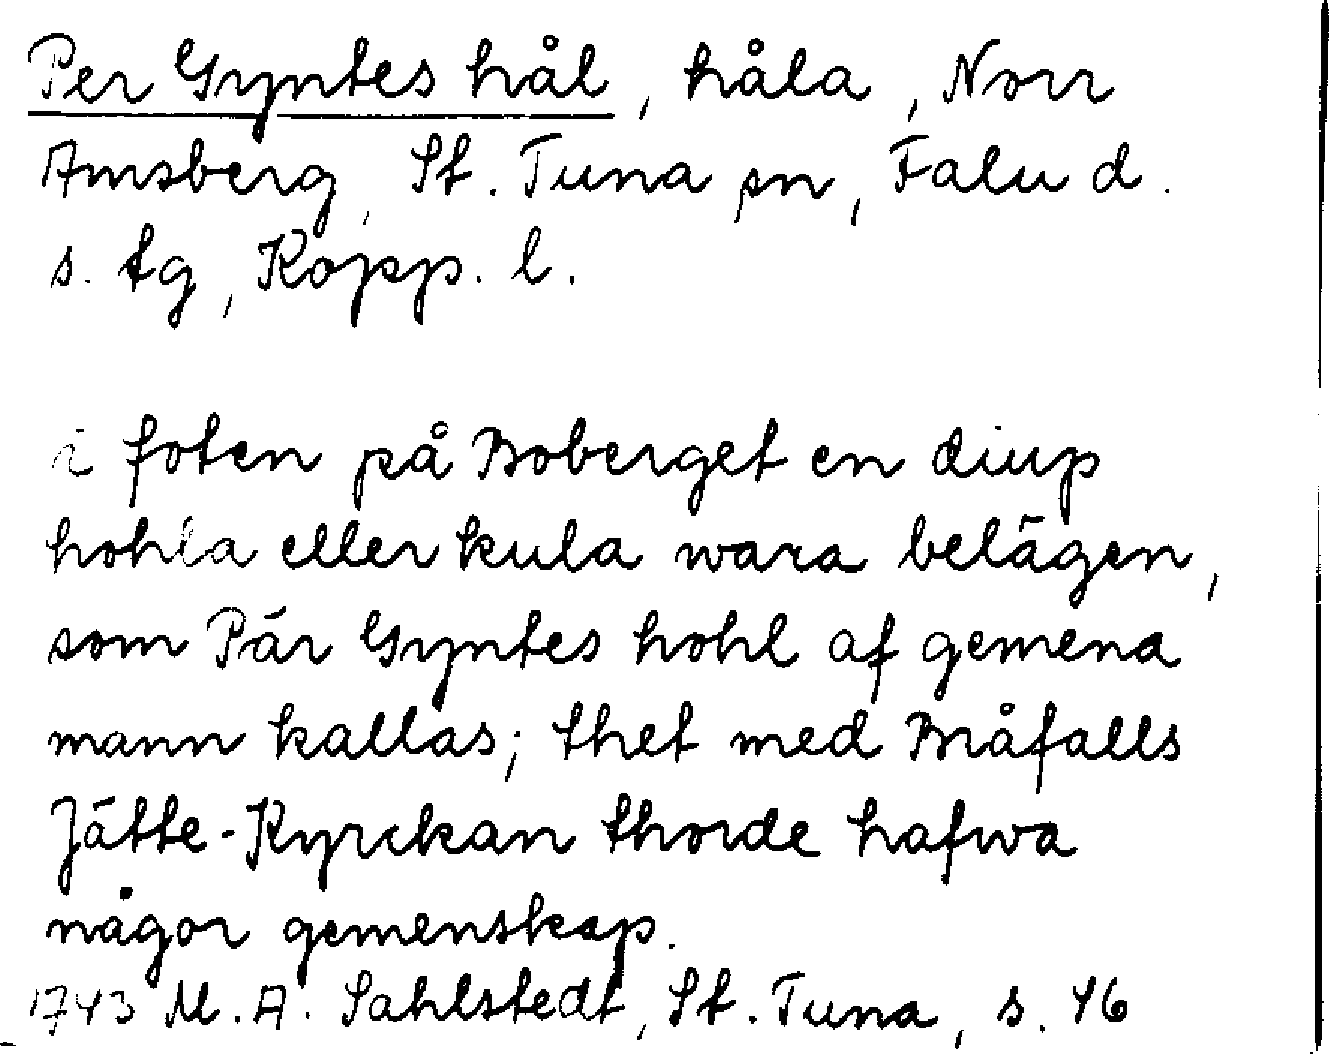 Per Gyntes hål, håla, Norr
Amsberg, St. Tuna sn, Falu d.
s. tg, Kopp. l.
i foten på Boberget en diup
hohla eller kula wara belägen,
som Pär Gyntes hohl af gemena
mann kallas; thet med Bråfalls
Jätte-Kyrckan thorde hafwa
någor gemenskap.
1743 M. A. Sahlstedt, St. Tuna, s. 46